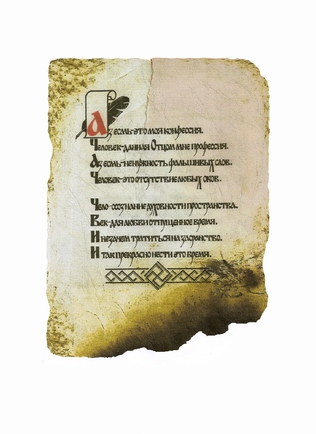 Аз есмь-это моя конфессия.
Человек-данная Отцом мне профессия.
Аз есмь-ненужность фальшивых слов.
Человек-это отсутствие любых оков.
Чело-осознание духовности пространства.
Век-для любви отпущенное время.
И незачем тратиться на хаомство.
И так прекрасно нести это время.